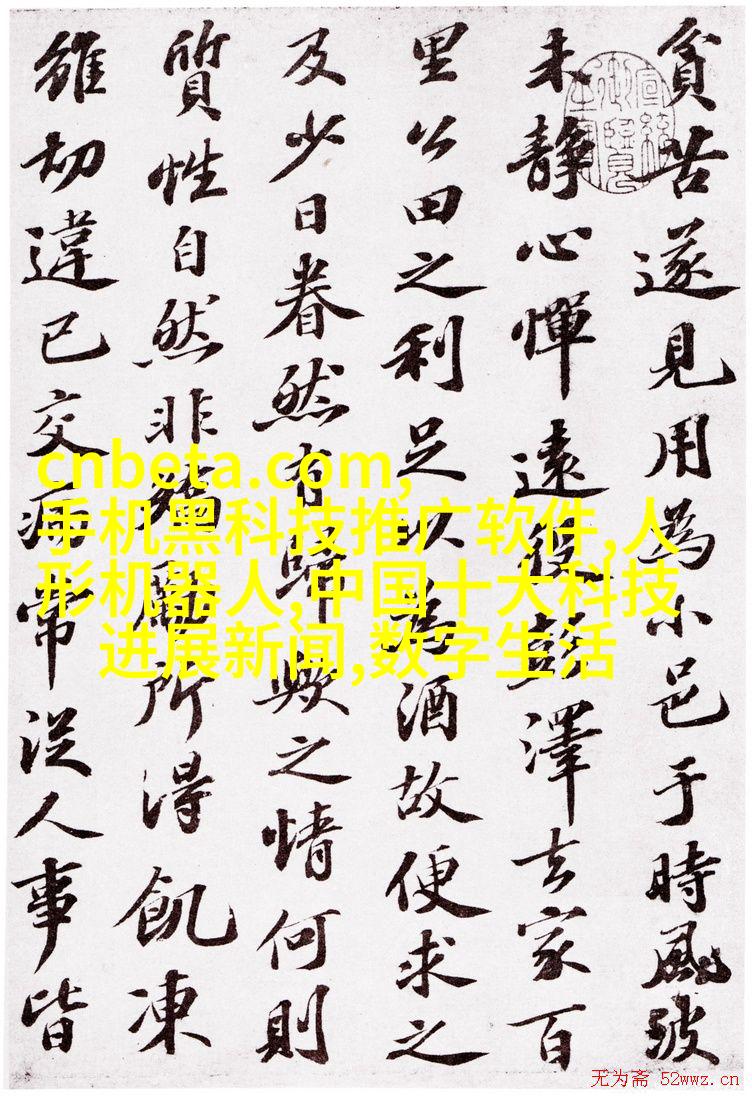 貧苦遂見用為小邑于時風波
未静心憚遠役彭澤去家百
里公田之利足以為酒故便求之
及少日眷然有歸歟之情何則
質性自然非矯厲所得飢凍
雖切違已交病常從人事皆
cnbeta.com,
手机黑科技推广软件,人
形机器人,中国十大科技
进展新闻,数字生活
无为斋 52wwz.cn